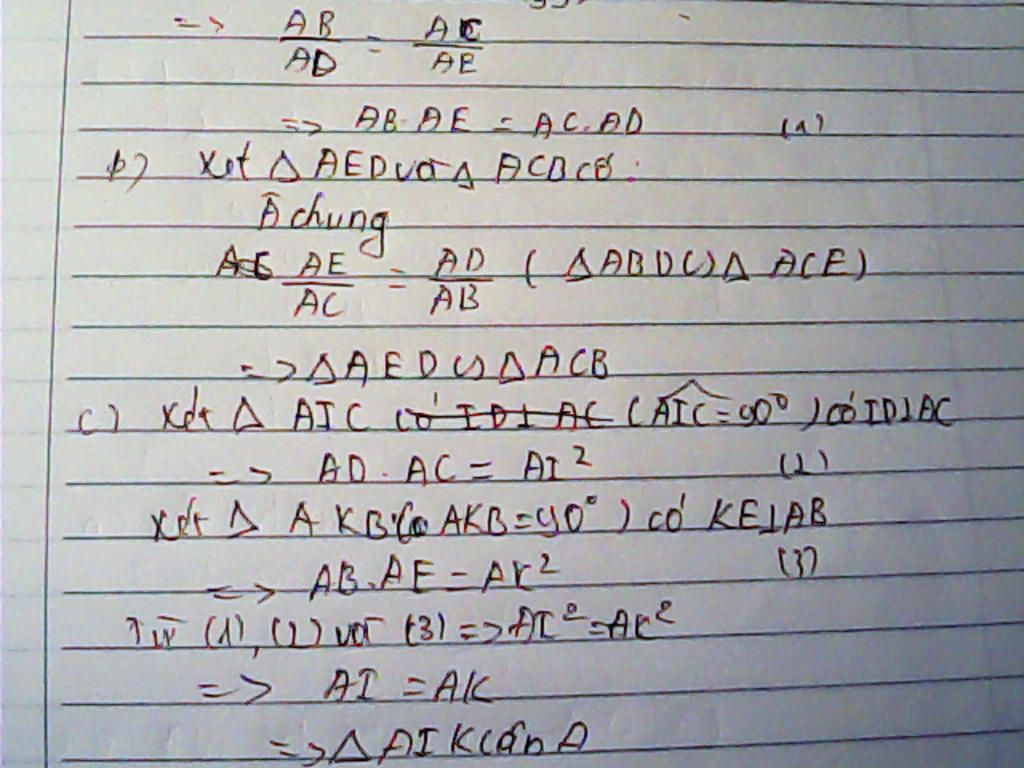 => AB/AD = AC/AE
=> AB.AE = AC.AD (1)
b) Xét Δ AED và Δ ACB có:
Â chung
AE/AC = AD/AB (ΔABD ∽ Δ ACE)
=> ΔAED ∽ ΔACB
c) Xét Δ AIC có ID⊥AC (AIC=90°) có ID⊥AC
=> AD.AC = AI² (2)
Xét Δ AKB (AKB=90°) có KE⊥AB
=> AB.AE = AK² (3)
Từ (1), (2) và (3) => AI² = AK²
=> AI = AK
=> Δ AIK cân A